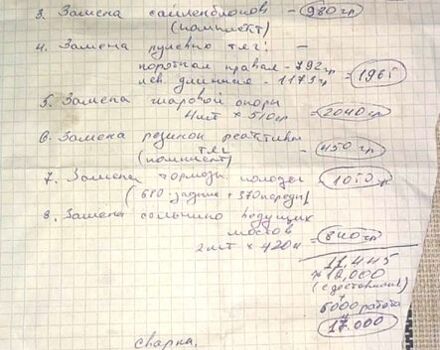 3. Замена сайлентблоков - 980 гр
(комплект)
4. Замена рулевых тяг: -
короткая правая - 792 гр
лев. длинная - 1173 г = 1965
5. Замена шаровой опоры
4шт × 510 гр = 2040 гр
6. Замена резинок реактивн
тяг
(комплект) - 450 гр
7. Замена тормозн колодок 1050
(680 задние + 370 передн)
8. Замена сальников ведущих
мостов
2шт × 420 = 840 гр
11,445
≈ 12,000
(с доставкой)
+
5000 работа
17.000
Сварка.